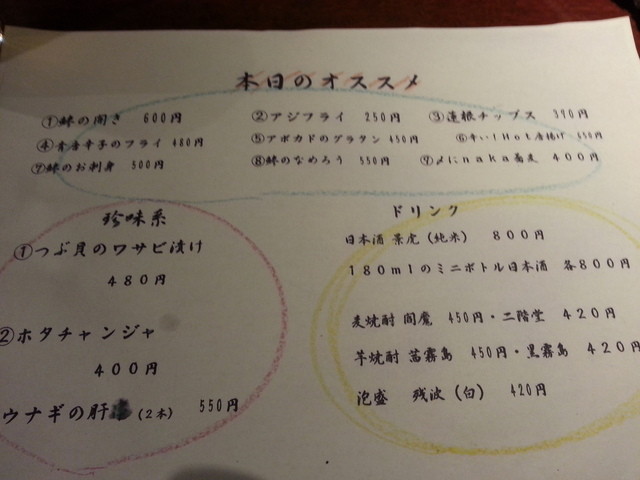 本日のオススメ
①鯵の開き 600円 ②アジフライ 250円 ③蓮根チップス 390円
④青唐辛子のフライ 480円 ⑤アボカドのグラタン 450円 ⑥辛い!Hot唐揚げ 550円
⑦鯵のお刺身 500円 ⑧鯵のなめろう 550円 ⑨〆にnaka蕎麦 400円
珍味系
①つぶ貝のワサビ漬け
480円
②ホタチャンジャ
400円
ウナギの肝 (2本) 550円
ドリンク
日本酒 景虎(純米) 800円
180mlのミニボトル日本酒 各800円
麦焼酎 閻魔 450円・二階堂 420円
芋焼酎 茜霧島 450円・黒霧島 420円
泡盛 残波(白) 420円